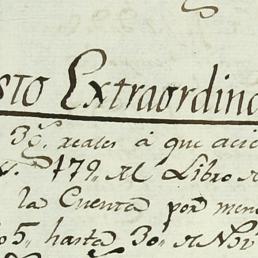 sto Extraordina
35 reales à que acie
479 al Libro de
la Cuenta por men
5 hasta 30 de Nov